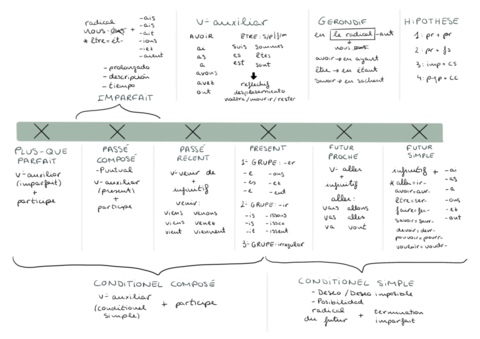 radical
nous -ons +
* être = ét-
- ais
- ais
- ait
- ions
- iez
- aient
- prolongado
- descripción
- tiempo
IMPARFAIT
V-AUXILIAR
AVOIR
ai
as
a
avons
avez
ont
ÊTRE: S/P/I/M
suis sommes
es êtes
est sont
reflectif
desplazamiento
naître/mourir/rester
GERONDIF
en le radical -ant
nous
avoir → en ayant
être → en étant
savoir → en sachant
HIPOTHESE
1: pr + pr
2: pr + fs
3: imp + cs
4: pqp + cc
PLUS-QUE
PARFAIT
v-auxiliar
(imparfait)
+
participe
PASSÉ
COMPOSÉ
- Puntual
v-auxiliar
(present)
+
participe
PASSÉ
RECENT
v-venir de
+
infinitif
venir:
viens venons
viens venez
vient viennent
PRESENT
1- GRUPE: -er
-e -ons
-es -ez
-e -ent
2- GRUPE: -ir
-is -issons
-is -issez
-it -issent
3- GRUPE: irregular
FUTUR
PROCHE
v- aller
+
infinitif
aller:
vais allons
vas allez
va vont
FUTUR
SIMPLE
infinitif +
* aller = ir-
avoir = aur-
être = ser-
faire = fe-
savoir = saur-
devoir = devr-
pouvoir = pourr-
vouloir = voudr-
- ai
- as
- a
- ons
- ez
- ont
CONDITIONEL COMPOSÉ
v- auxiliar
(conditionel
simple)
+ participe
CONDITIONEL SIMPLE
- Deseo / Deseo imposible
- Posibilidad
radical
du futur
+ terminación
imparfait